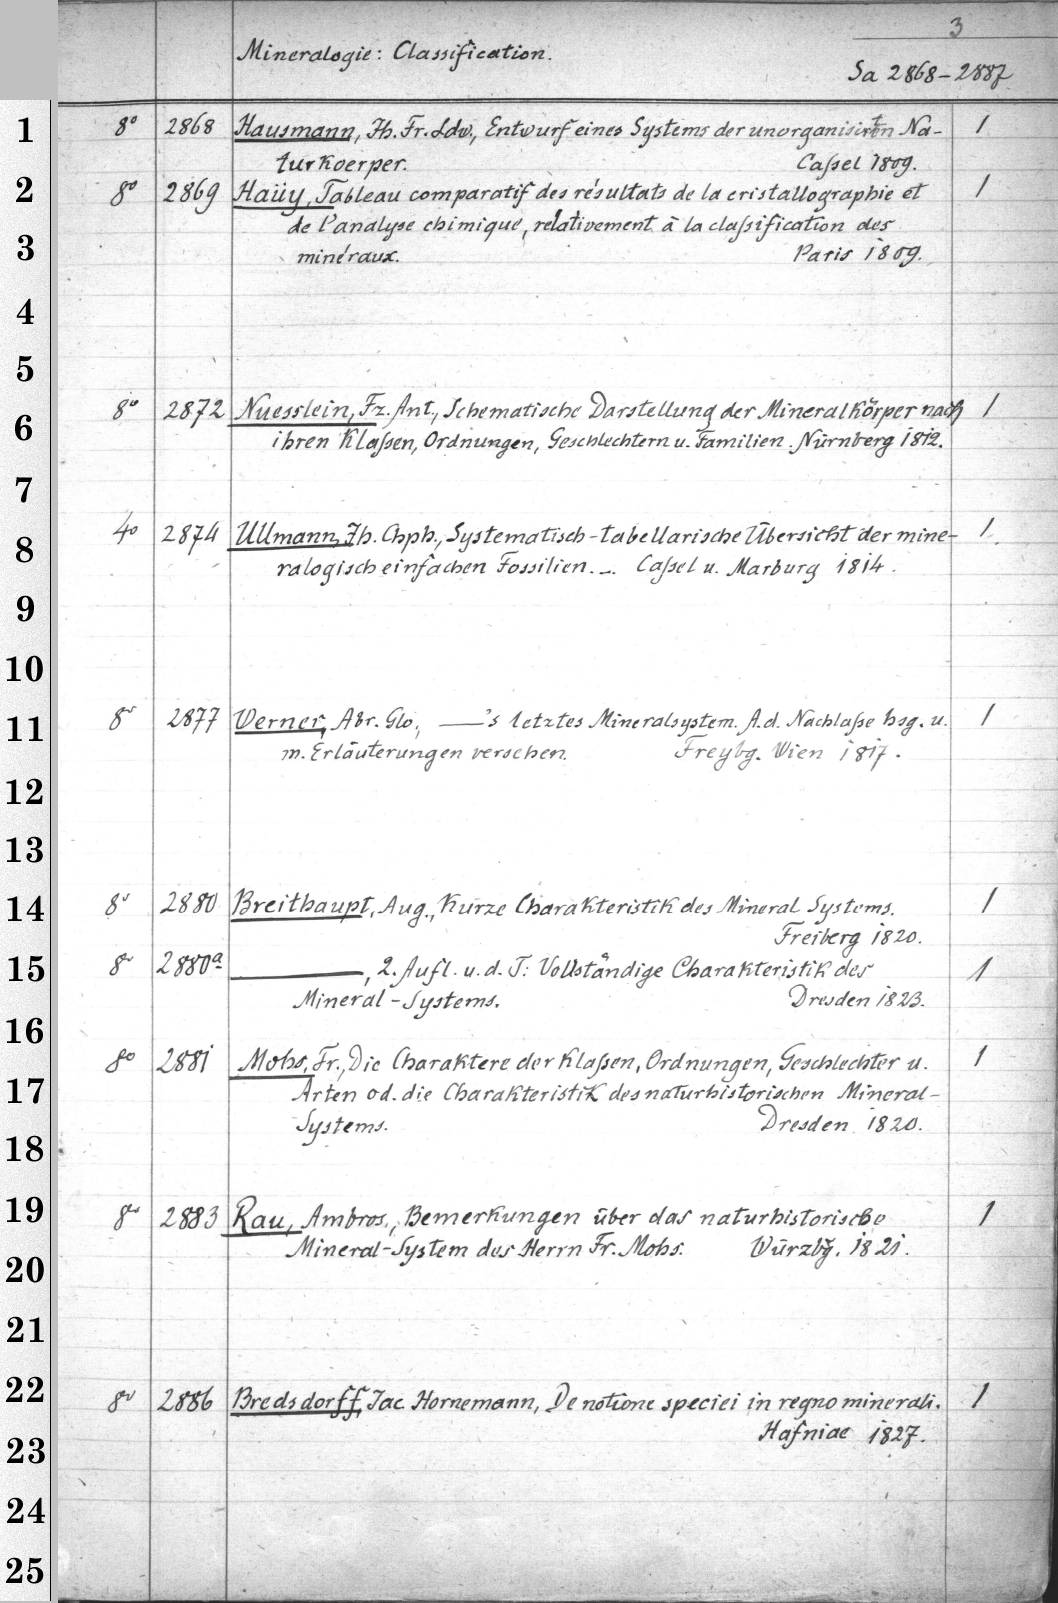 3
Mineralogie: Classification.
Sa 2868–2887
1
8° 2868 Hausmann, Jh. Fr. Ldw., Entwurf eines Systems der unorganisirten Na- 1
turkoerper. Caſsel 1809.
2
8° 2869 Haüy, Tableau comparatif des résultats de la cristallographie et 1
de l'analyse chimique, relativement à la claſsification des
3
minéraux. Paris 1809.
4
5
8° 2872 Nuesslein, Fz. Ant., Schematische Darstellung der Mineralkörper nach 1
6
ihren Klaſsen, Ordnungen, Geschlechtern u. Familien. Nürnberg 1812.
7
4° 2874 Ullmann, Jh. Chph., Systematisch-tabellarische Übersicht der mine- 1
8
ralogisch einfachen Fossilien. – Caſsel u. Marburg 1814.
9
10
8° 2877 Werner, Abr. Glo., ——'s letztes Mineralsystem. A. d. Nachlaſse hsg. u. 1
11
m. Erläuterungen versehen. Freybg. Wien 1817.
12
13
8° 2880 Breithaupt, Aug., Kurze Charakteristik des Mineral Systems. 1
14
Freiberg 1820.
15
8° 2880a ————, 2. Aufl. u. d. T: Vollständige Charakteristik des 1
Mineral-Systems. Dresden 1823.
16
8° 2881 Mohs, Fr., Die Charaktere der Klaſsen, Ordnungen, Geschlechter u. 1
17
Arten od. die Charakteristik des naturhistorischen Mineral-
Systems. Dresden 1820.
18
19
8° 2883 Rau, Ambros., Bemerkungen über das naturhistorische 1
Mineral-System des Herrn Fr. Mohs. Würzbg. 1821.
20
21
22
8° 2886 Bredsdorff, Jac. Hornemann, De notione speciei in regno minerali. 1
Hafniae 1827.
23
24
25